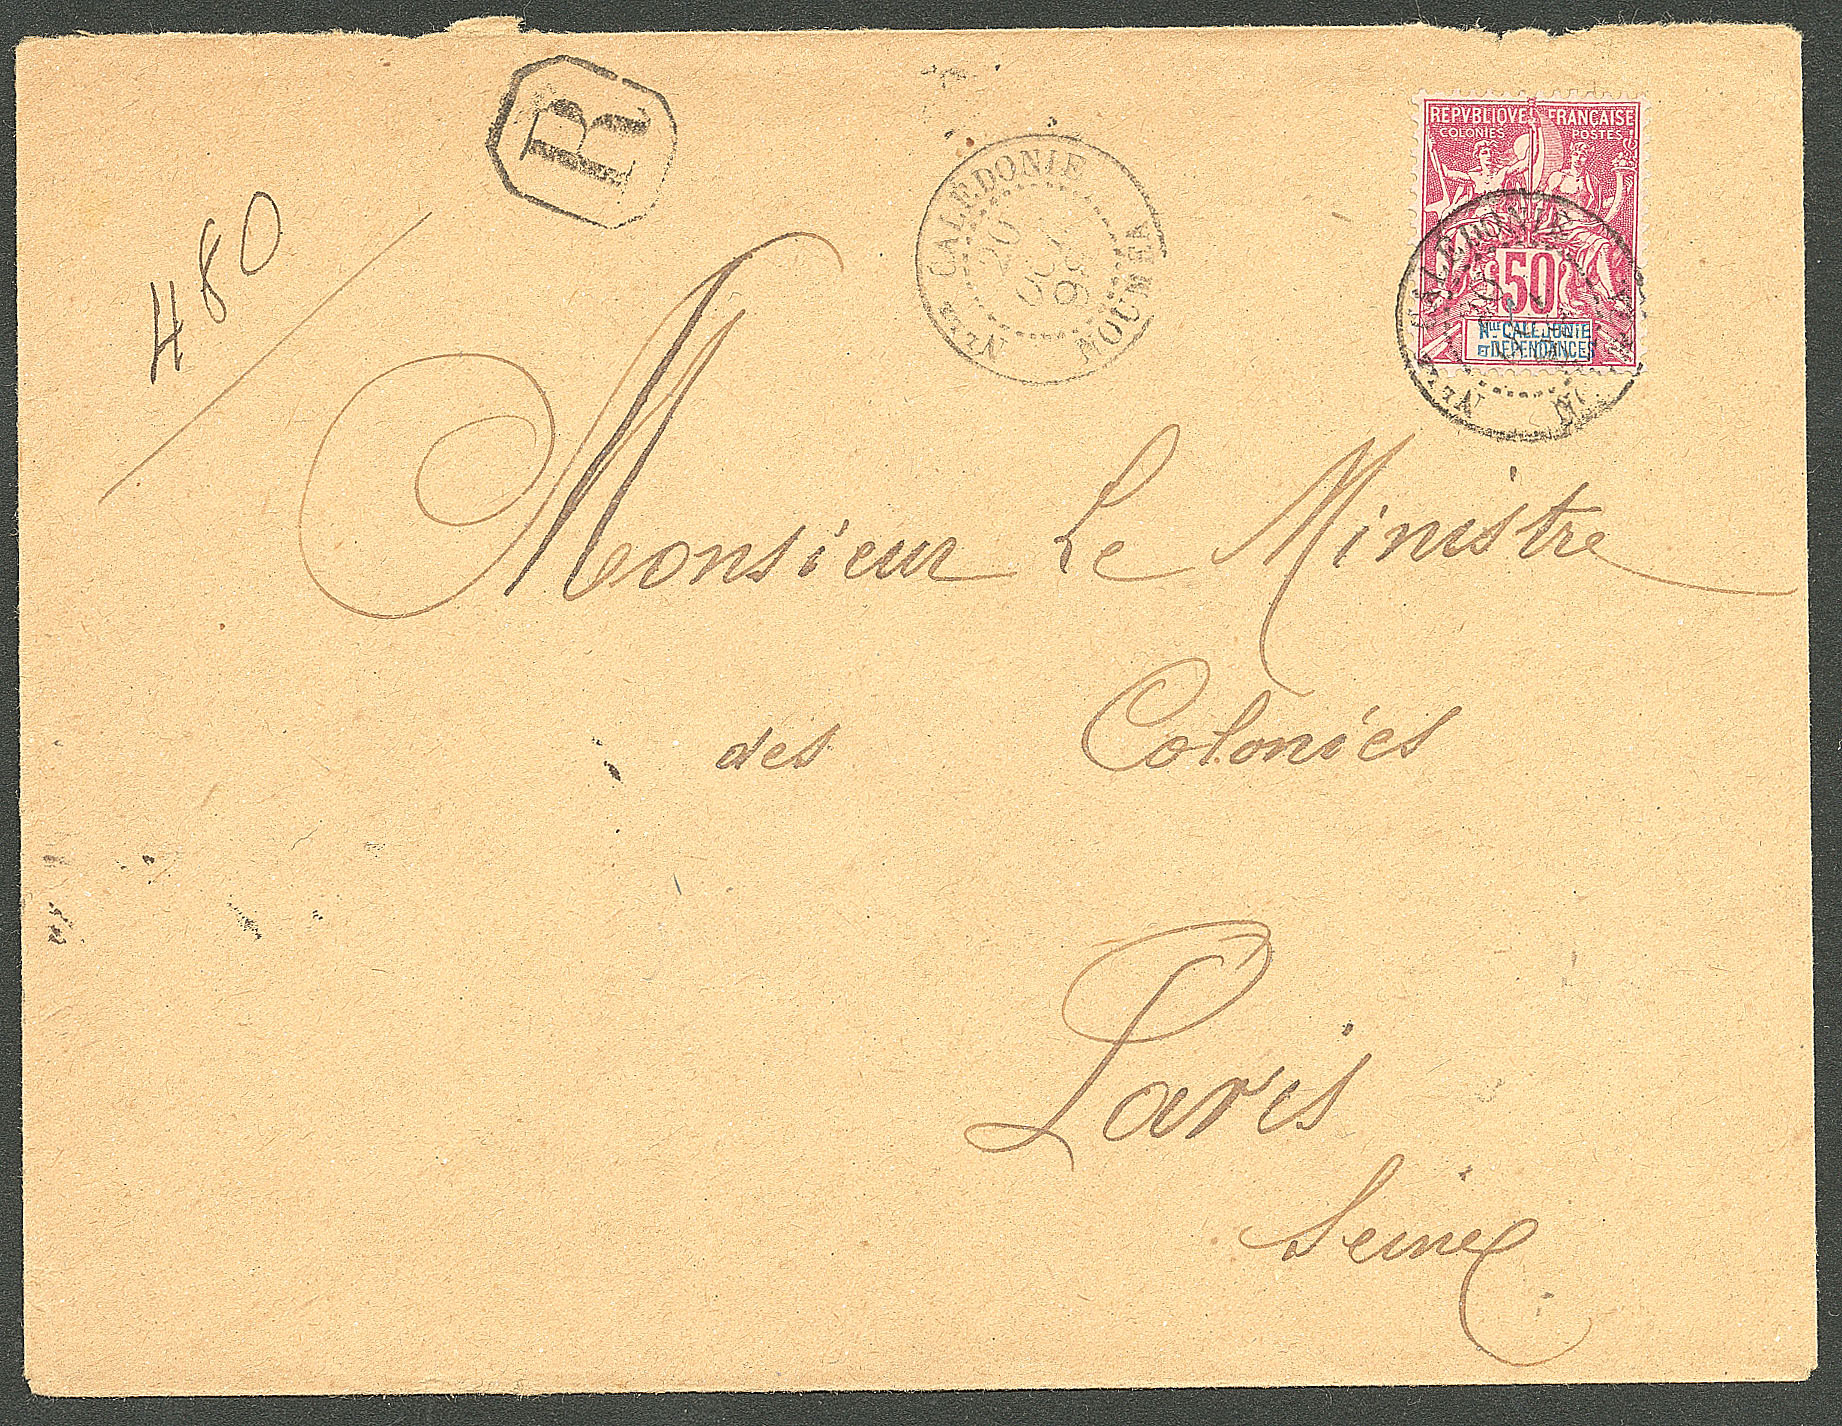 R
480
Nᴸᴸᴱ CALÉDONIE
20
OCT
96
NOUMEA
REPVBLIQVE FRANÇAISE
COLONIES POSTES
50
Nᴸᴸᴱ CALÉDONIE
ET DÉPENDANCES
Nᴸᴸᴱ CALÉDONIE
Monsieur Le Ministre
des Colonies
Paris
Seine